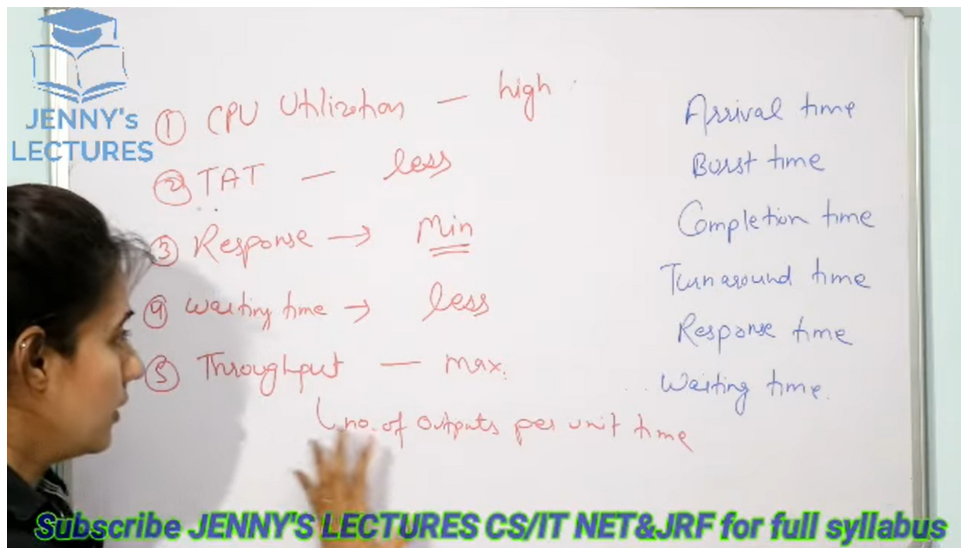 JENNY's
LECTURES
① CPU Utilization — high
② TAT — less
③ Response → Min
④ Waiting time → less
⑤ Throughput — max.
no. of outputs per unit time
Arrival time
Burst time
Completion time
Turnaround time
Response time
Waiting time.
Subscribe JENNY'S LECTURES CS/IT NET&JRF for full syllabus